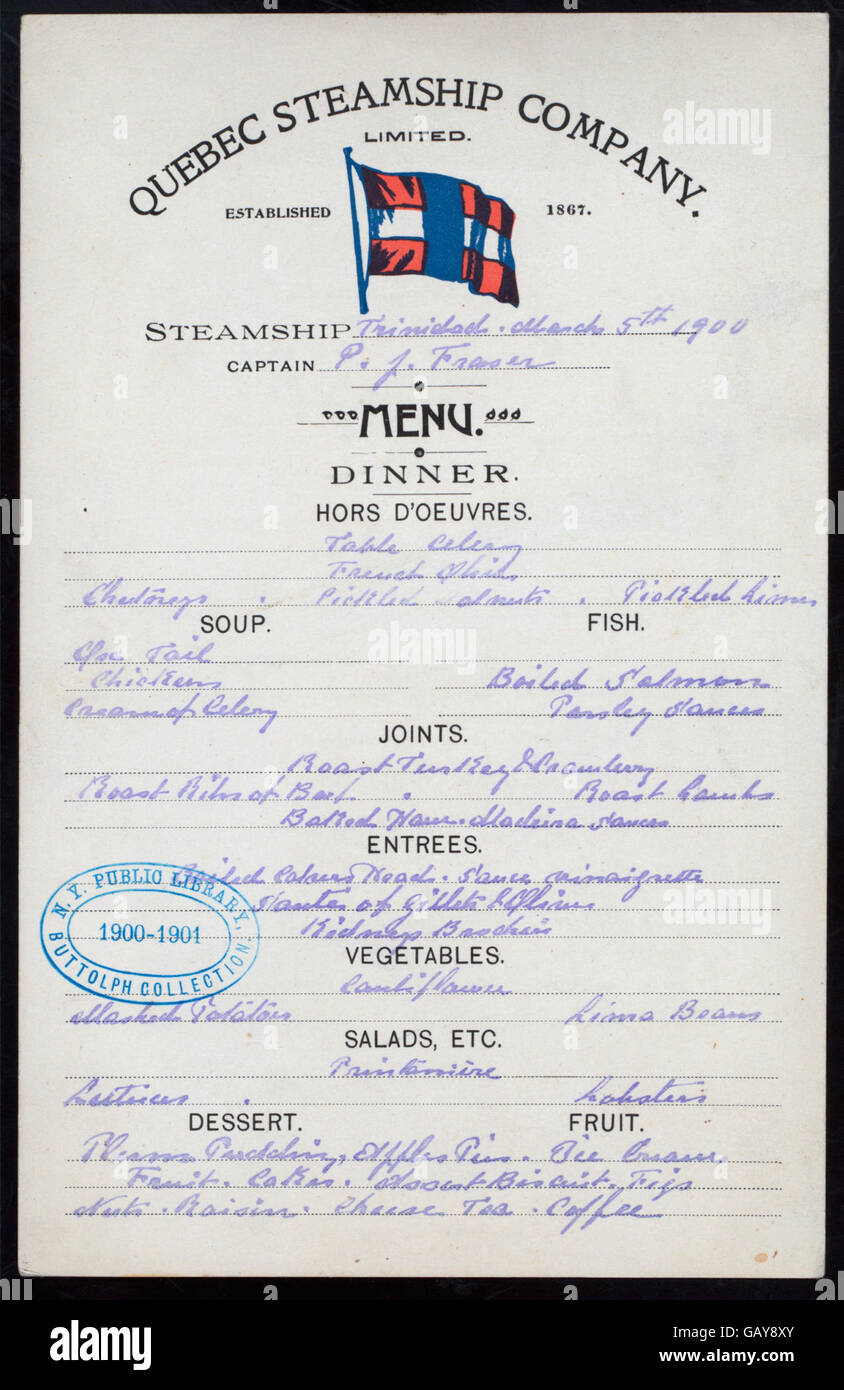 QUEBEC STEAMSHIP COMPANY.
LIMITED.
ESTABLISHED 1867.
STEAMSHIP Trinidad. March 5th 1900
CAPTAIN P. J. Fraser
MENU.
DINNER.
HORS D'OEUVRES.
Table Celery
French Olives
Chutneys . Pickled Walnuts . Pickled Limes
SOUP. FISH.
Ox Tail
Chicken Boiled Salmon
Cream of Celery Parsley Sauces
JOINTS.
Roast Turkey & Cranberry
Roast Ribs of Beef . Roast Lamb
Baked Ham. Madeira Sauces
ENTREES.
Boiled Calves Head. Sauce vinaigrette
Sautés of & Olives
Kidneys
N.Y. PUBLIC LIBRARY,
1900-1901
BUTTOLPH COLLECTION
VEGETABLES.
Cauliflower
Mashed Potatoes Lima Beans
SALADS, ETC.
Printanière
Lettuces . Lobsters
DESSERT. FRUIT.
Plum Pudding, Apples Pies. Ice Cream,
Fruit. Cakes. Assort Biscuit. Figs
Nuts. Raisin. Cheese Tea. Coffee
alamy
a
alamy stock photo
GAY8XY
www.alamy.com